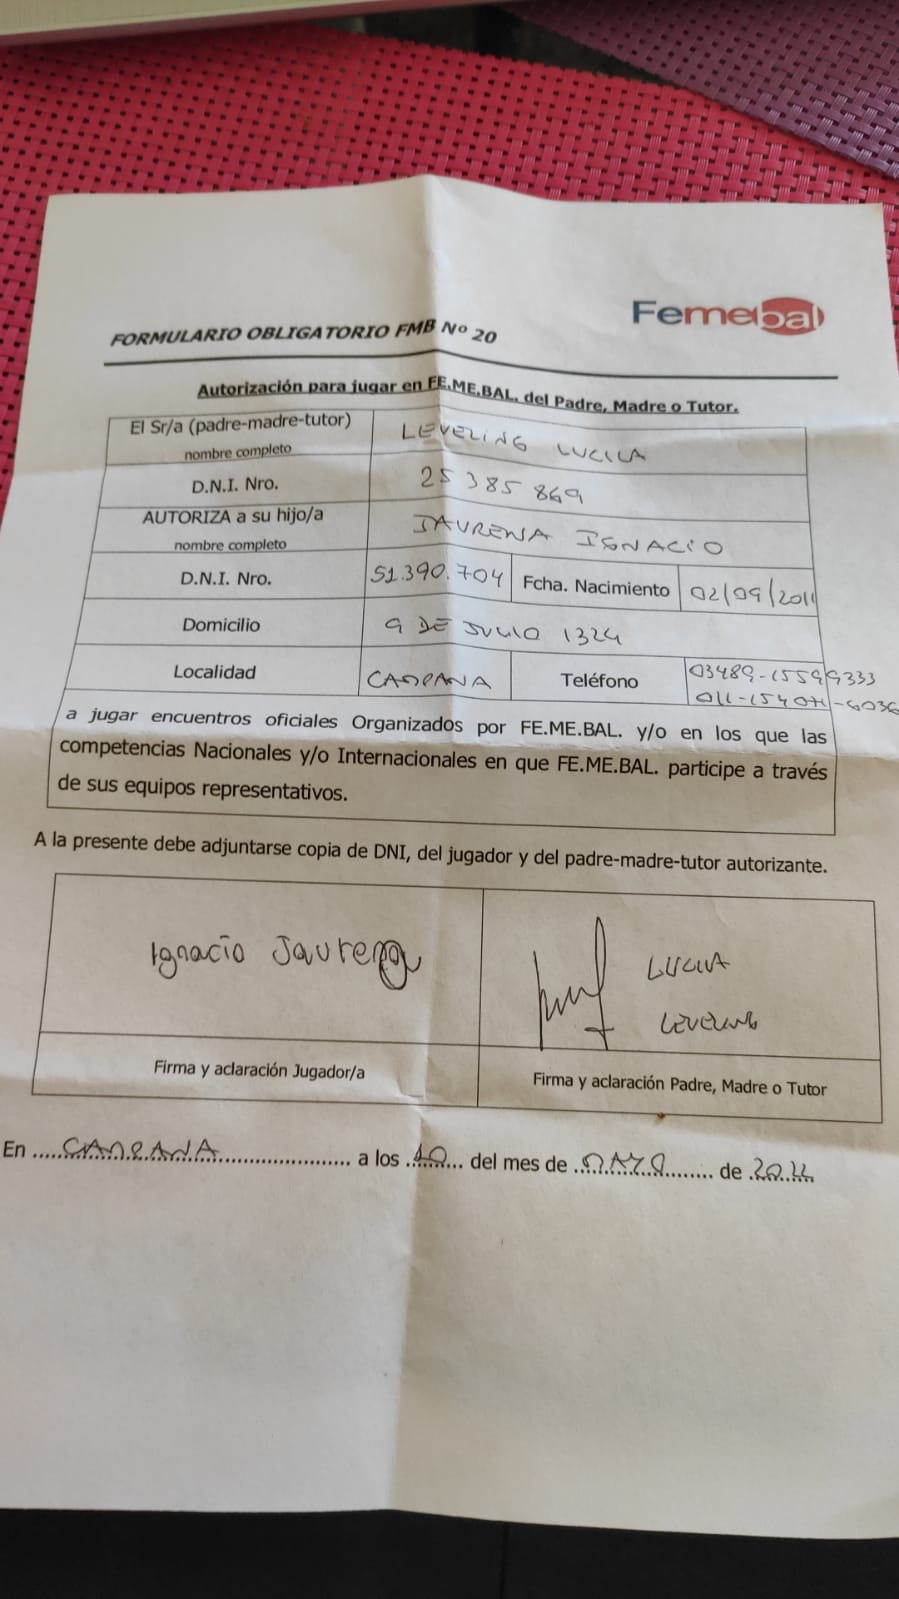 Femebal
FORMULARIO OBLIGATORIO FMB Nº 20
Autorización para jugar en FE.ME.BAL. del Padre, Madre o Tutor.
El Sr/a (padre-madre-tutor) nombre completo LEVELING LUCILA
D.N.I. Nro. 25 385 869
AUTORIZA a su hijo/a nombre completo JAURENA IGNACIO
D.N.I. Nro. 51.390.704 Fcha. Nacimiento 02/09/2011
Domicilio 9 DE JULIO 1324
Localidad CAMPANA Teléfono 03489-15599333
a jugar encuentros oficiales Organizados por FE.ME.BAL. y/o en los que las
competencias Nacionales y/o Internacionales en que FE.ME.BAL. participe a través
de sus equipos representativos.
A la presente debe adjuntarse copia de DNI, del jugador y del padre-madre-tutor autorizante.
Ignacio Jaurena
LUCILA
LEVELING
Firma y aclaración Jugador/a
Firma y aclaración Padre, Madre o Tutor
En CAMPANA a los 10 del mes de MAYO de